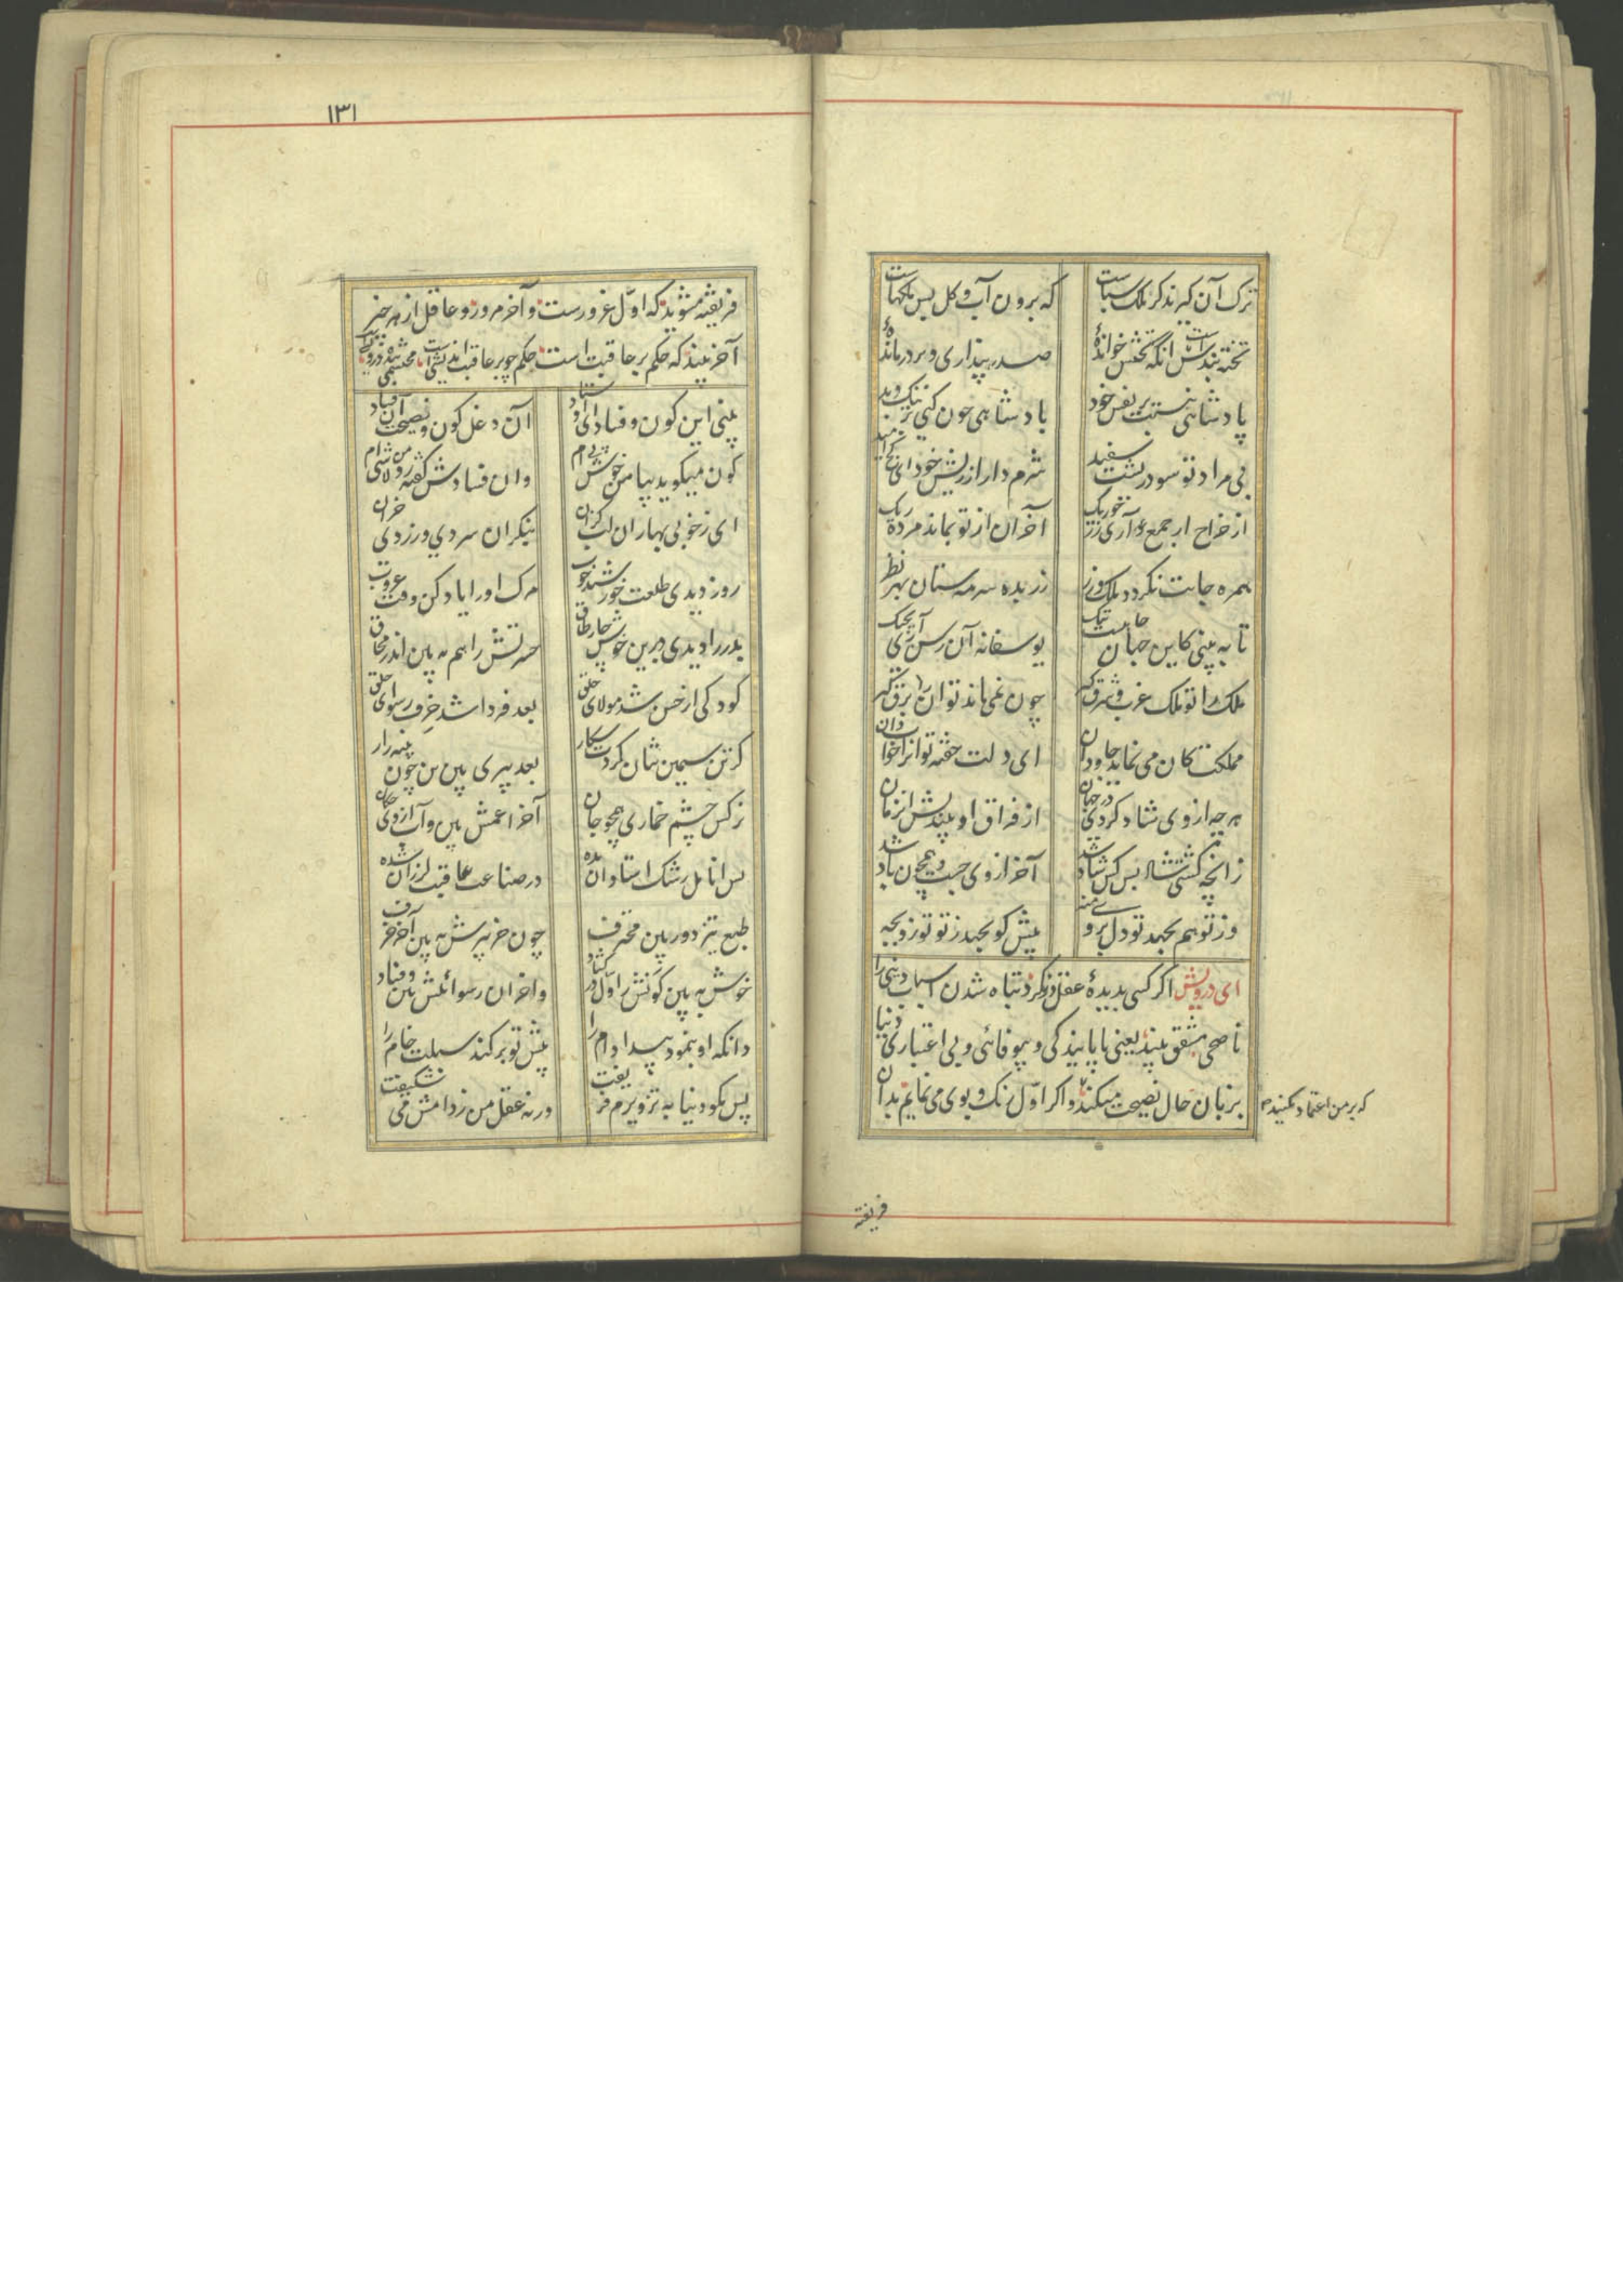 ترک آن گیرند کز ملک سباست
که برون آب و گل بس ملکهاست
تخته بندست انکه تختش خواندهٔ
صدر پنداری و بر در ماندهٔ
پادشاهی نیستت بر نفس خود
پادشاهی چون کنی بر نیک و بد
بی مراد تو شود ریشت سفید
شرم دار از ریش خود ای کج امید
از خراج ار جمع آری زر چو ریک
آخر آن از تو بماند مرده ریک
همره جانت نکردد ملک و زر
زر بده سرمه ستان بهر نظر
تا به بینی کاین جهان چاهیست تنک
یوسفانه آن رسن آری بچنک
ملک را تو ملک غرب و شرق گیر
چون نمی ماند تو آن را برق گیر
مملکت کان می نماند جاودان
ای دلت خفته تو آنرا خواب دان
هر چه از وی شاد کردی در جهان
از فراق او بیندیش آن زمان
زانچه کشتی شاد بس کس شاد شد
آخر از وی جست و همچون باد شد
وز تو هم بجهد تو دل بر وی منه
پیش کو بجهد ز تو تو زو بجه
ای درویش اکر کسی بدیدهٔ عقل نکرد تباه شدن اسباب دنیی را
ناصحی مشفق بیند یعنی ناپایندکی و بیوفائی و بی اعتباری دنیا
بزبان حال نصیحت میکند و اکر اول رنک و بوی می نمایم بدان
که بر من اعتماد مکنید
فریفته
١٣١
فریفته مشوید که اول غرورست و آخر مرور و عاقل از هر چیز
آخر بیند که حکم بر عاقبت است حکم چو بر عاقبت اندیشی است محتشمی
بینی این کون و فساد ای اوستاد
آن دغل کون و نصیحت آن فساد
کون میکوید بیا من خوش پیم
وان فسادش کفته رو من لا شی ام
ای ز خوبی بهاران لب کزان
بنکر آن سردی و زردی خزان
روز دیدی طلعت خورشید خوب
مرک او را یاد کن وقت غروب
بدر را دیدی برین خوش چار طاق
حسرتش را هم به بین اندر محاق
کودکی از حسن شد مولای خلق
بعد فردا شد خرف رسوای خلق
کر تن سیمین تنان کردت شکار
بعد پیری بین تن چون پنبه زار
نرکس چشم خماری همچو جان
آخر اعمش بین و آب از وی چکان
بس انامل رشک استادان شده
در صناعت عاقبت لرزان شده
طبع تیز دور بین محترف
چون خر پیرش به بین آخر خرف
خوش به بین کونش ز اول در کشاد
واخر آن رسوائیش بین و فساد
زانکه او بنمود پیدا دام را
پیش تو برکند سبلت خام را
پس مکو دنیا به تزویرم فریفت
ورنه عقل من ز دامش می شکیفت